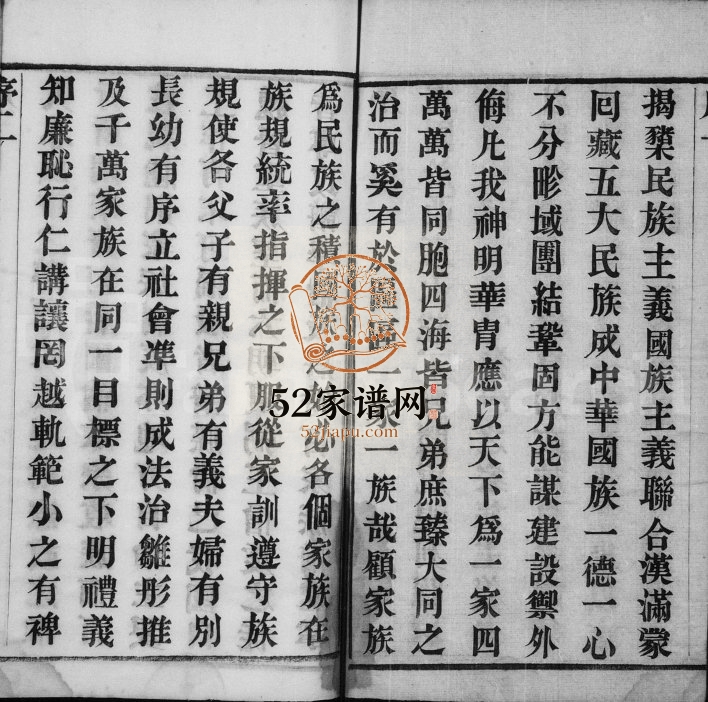 揭櫫民族主義國族主義聯合漢滿蒙
回藏五大民族成中華國族一德一心
不分畛域團結鞏固方能謀建設禦外
侮凡我神明華胄應以天下爲一家四
萬萬皆同胞四海皆兄弟庶臻大同之
治而奚有於區區一家一族哉顧家族
爲民族之積國族之始必各個家族在
族規統率指揮之下服從家訓遵守族
規使各父子有親兄弟有義夫婦有別
長幼有序立社會準則成法治雛形推
及千萬家族在同一目標之下明禮義
知廉恥行仁講讓罔越軌範小之有裨
序二
52家谱网
52jiapu.com